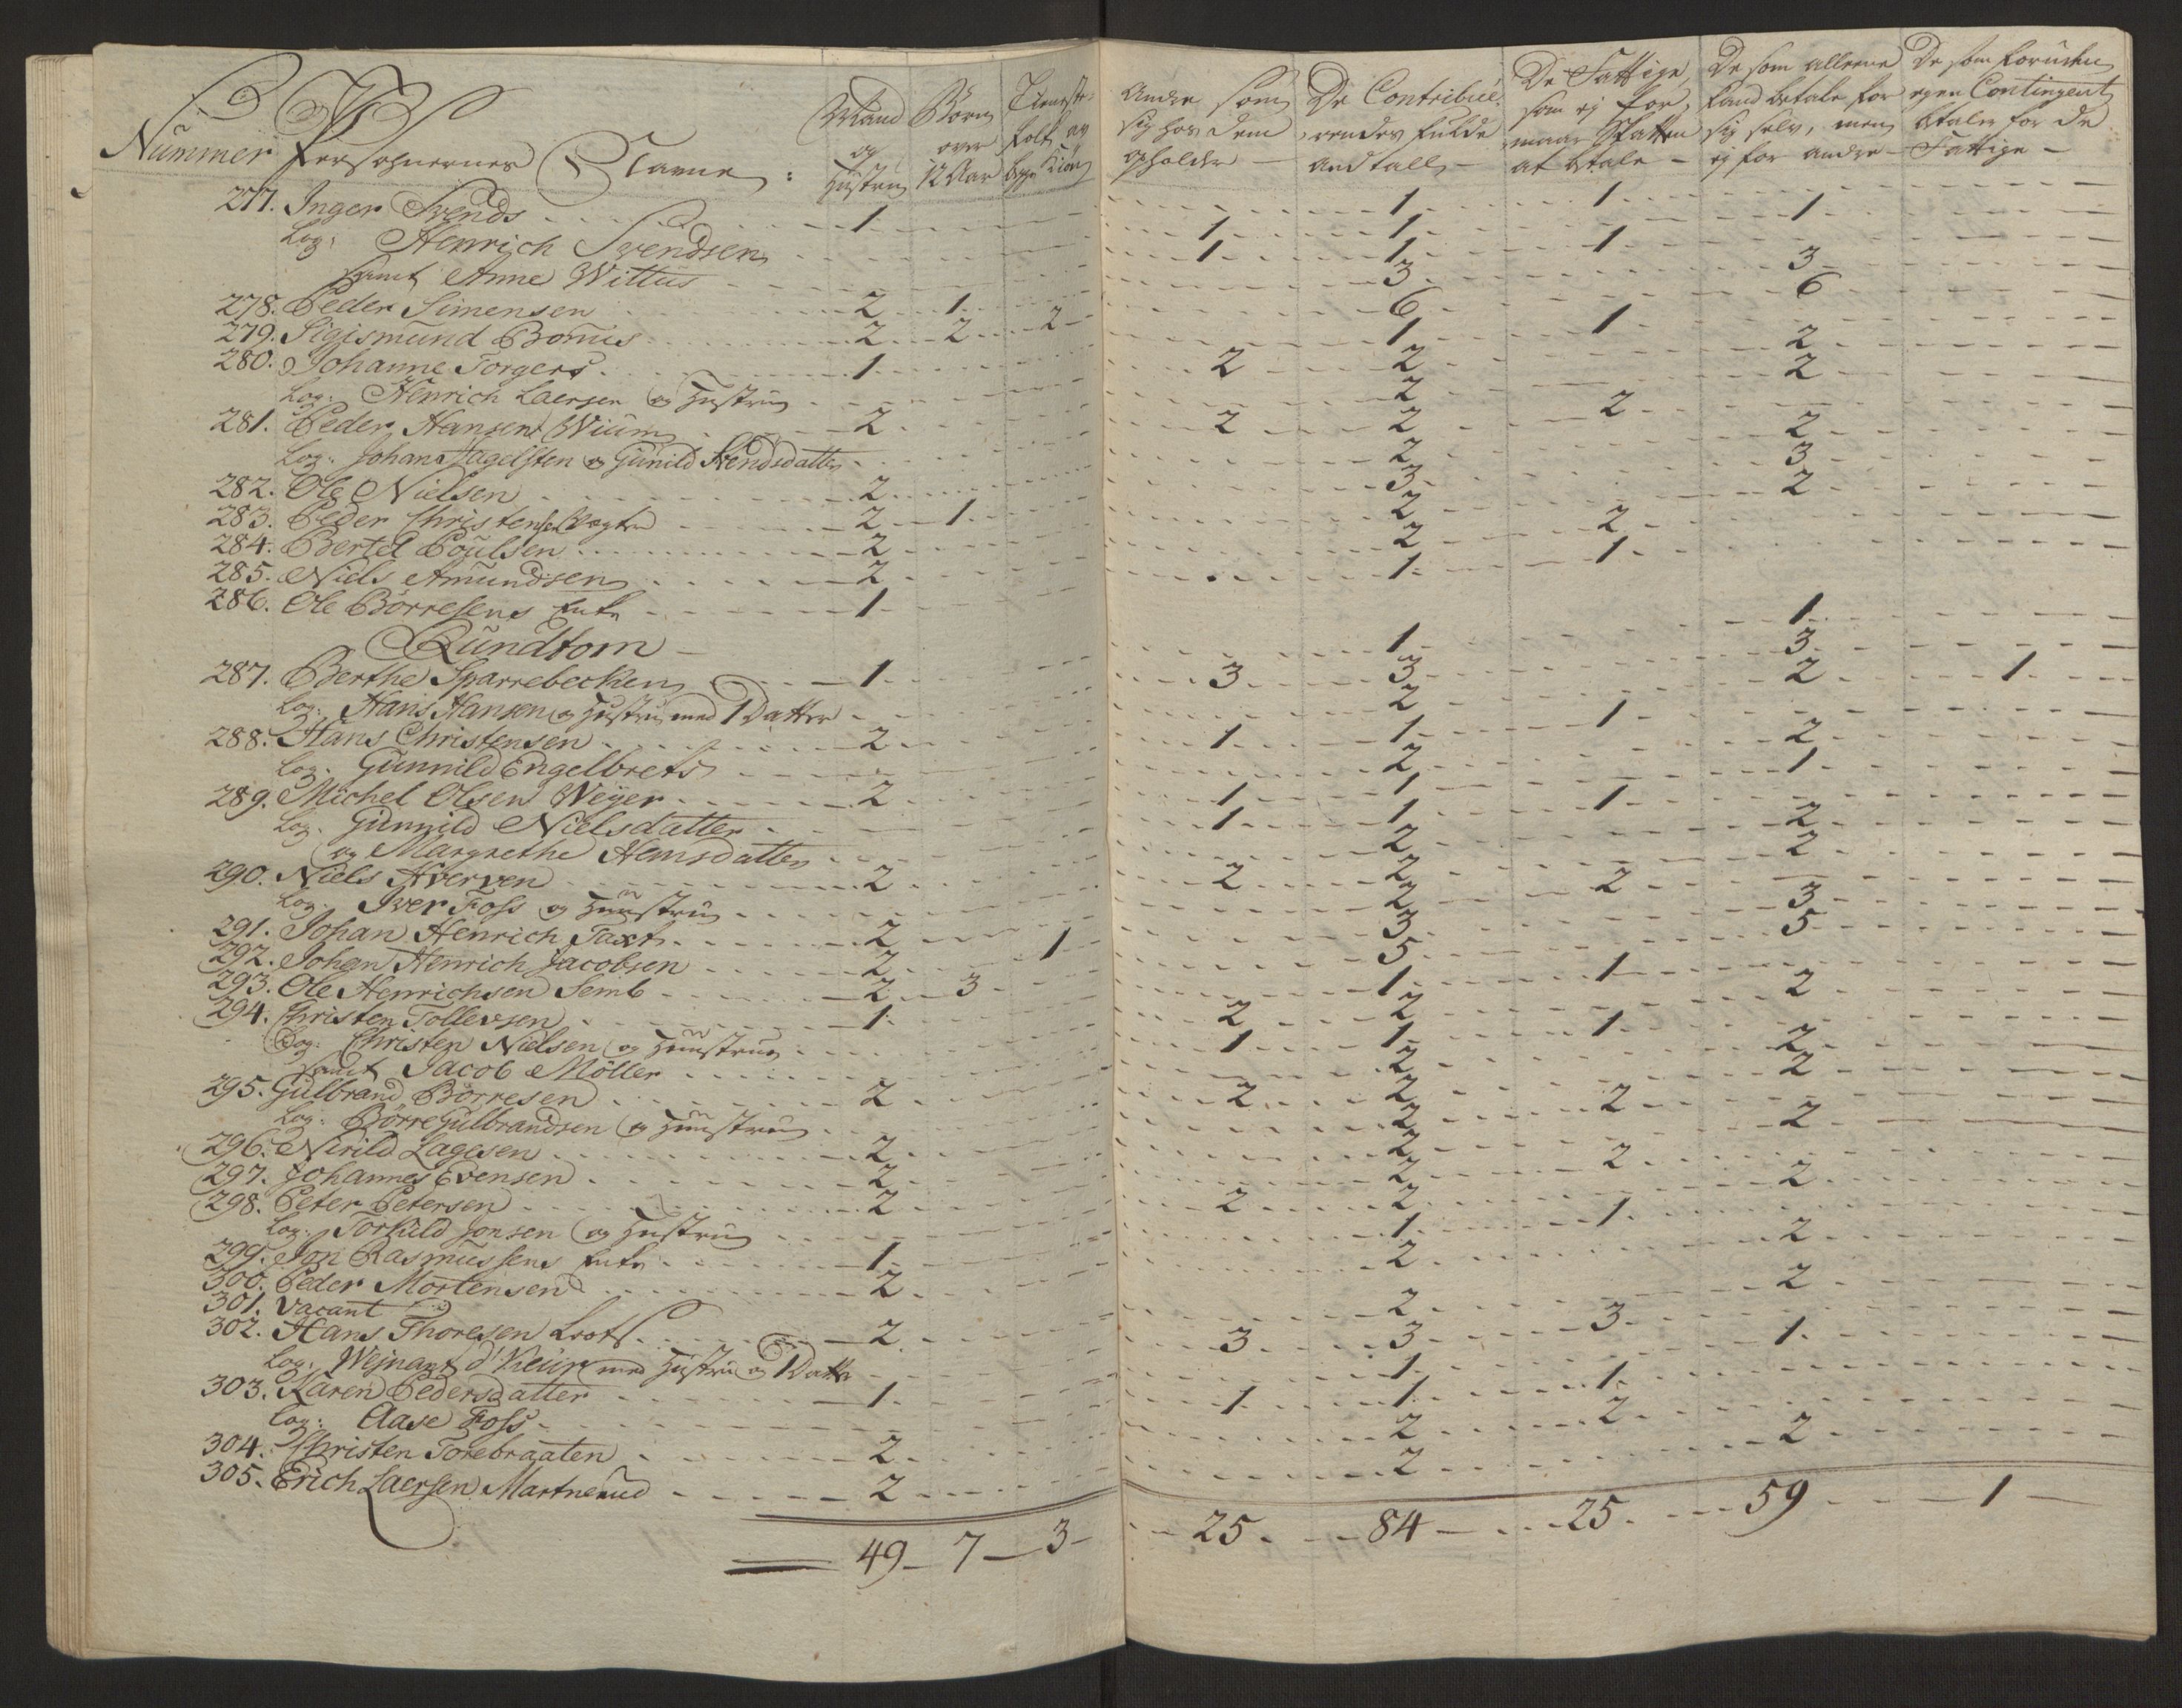 Nummer Persohnernes Navne: Mand og Hustru Børn over 12 Aar Tieneste folk af begge Kiøn Andre som sig hos dem opholder De Contribuerendes fulde Andtall De Fattige som ej formaar Skatten at betale De som alleene kand betale for sig selv, men ej for andre De som foruden egen Contingent betaler for de Fattige
277. Inger Svends 1 1 1
Log: Henrich Svendsen 1 1 1
samt Anne Wittus 1 1 1
278. Peder Simensen 2 1 3 3
279. Sigismund Bomis 2 2 2 6 6
280. Johanne Torgers 1 1 1
Log: Henrich Laersen og Hustru 2 2 2
281. Peder Hansen Wium 2 2 2
Log: Johan Nagelsten og Gunild Svendsdatter 2 2 2
282. Ole Nielsen 2 2 2
283. Peder Christensen Vogter 2 1 3 3
284. Bertel Poulsen 2 2 2
285. Niels Amundsen 2 2 2
286. Ole Börresens Enke 1 1 1
Rundtom
287. Berthe Sparrebecken 1 1 1
Log: Hans Hansen og Hustru med 1 Datter 3 3 3
288. Hans Christensen 2 2 2 1
Log: Gunnild Engelbrets 1 1 1
289. Michel Olsen Weyer 2 2 2
Log: Gunnild Nielsdatter 1 1 1
og Margrethe Hansdatter 1 1 1
290. Niels Hverven 2 2 2
Log: Iver Foss og Hunstru 2 2 2
291. Johan Henrich Taxt 2 2 2
292. Johan Henrich Jacobsen 2 1 3 3
293. Ole Henrichsen Semb 2 3 5 5
294. Christen Tollevsen 1 1 1
Log: Christen Nielsen og Hunstrue 2 2 2
samt Jacob Möller 1 1 1
295. Gulbrand Börresen 2 2 2
Log: Börre Gulbrandsen og Hunstrue 2 2 2
296. Nirild Lagesen 2 2 2
297. Johannes Evensen 2 2 2
298. Peter Petersen 2 2 2
Log: Torkuld Jonsen og Hustru 2 2 2
299. Jon Rasmussens Enke 1 1 1
300. Peder Mortensen 2 2 2
301. Vacant
302. Hans Thoresen Loots 2 2 2
Log: Wejnant d'Keur med Hustru og 1 Datter 3 3 3
303. Karen Pedersdatter 1 1 1
Log: Aase Foss 1 1 1
304. Christen Torebraaten 2 2 2
305. Erich Laersen Martnerud 2 2 2
49 7 3 25 84 25 59 1